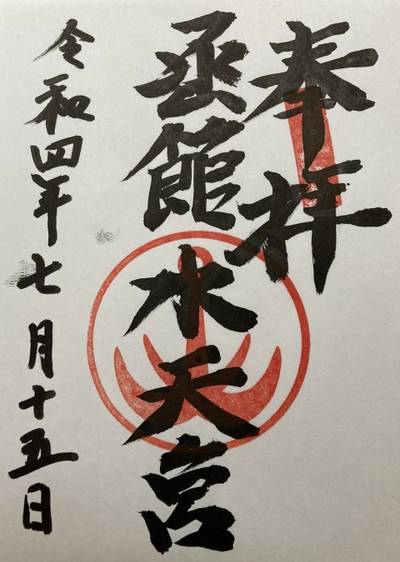 奉拝
函館水天宮
令和四年七月十五日